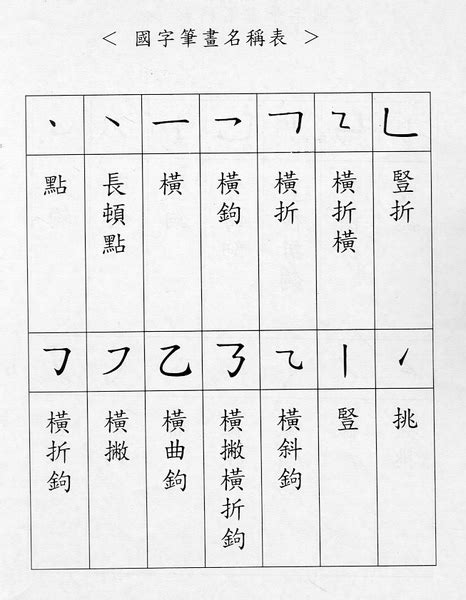 < 國字筆畫名稱表 >
丶 丶 一 乛 𠃍 ㇍ 𠃊
點
長頓點
橫
橫鉤
橫折
橫折橫
豎折
𠃌 ㇇ 乙 ㇡ ⺄ 丨 ㇀
橫折鉤
橫撇
橫曲鉤
橫撇橫折鉤
橫斜鉤
豎
挑